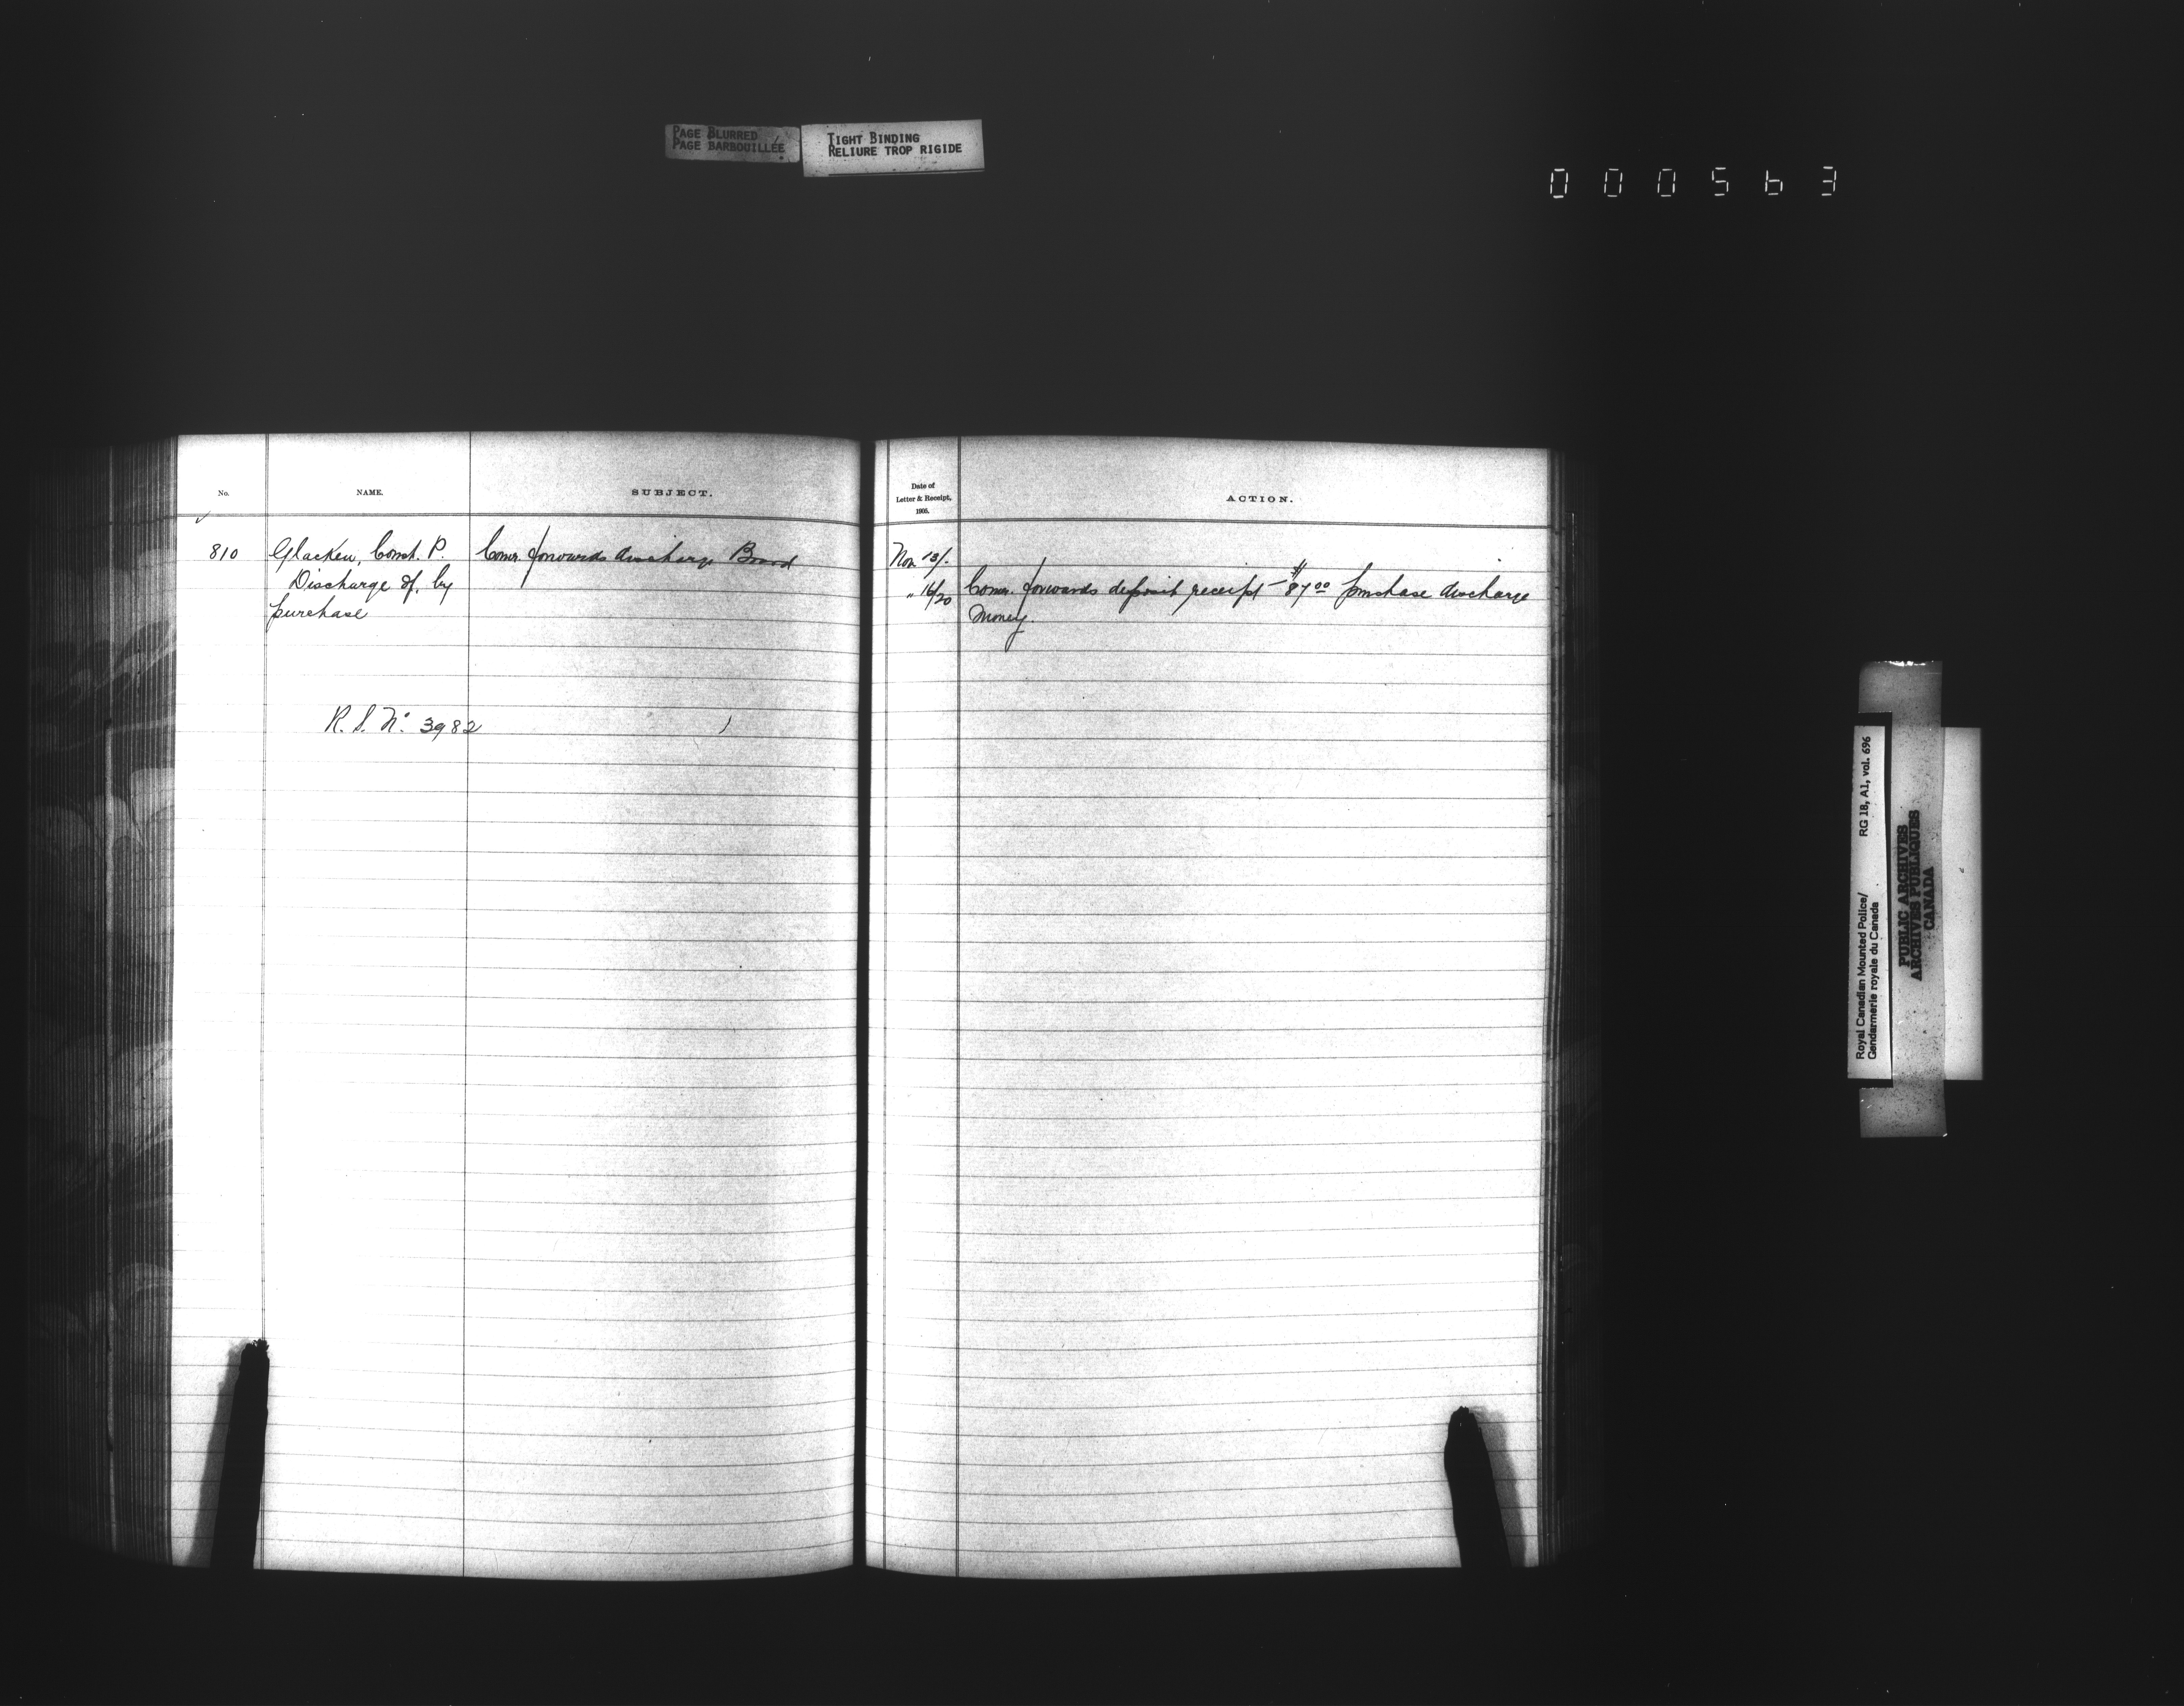 PAGE BLURRED
PAGE BARBOUILLÉE
TIGHT BINDING
RELIURE TROP RIGIDE
000563
No.
NAME.
SUBJECT.
810
Glacken, Const. P.
Discharge of, by
purchase
Comr. forwards discharge Board
R. S. No. 3982
Date of
Letter & Receipt,
1905.
ACTION.
Nov 13/.
" 16/20
Comr. forwards deposit receipt – $87.00 purchase discharge
money.
Royal Canadian Mounted Police/
Gendarmerie royale du Canada
RG 18, A1, vol. 696
PUBLIC ARCHIVES
ARCHIVES PUBLIQUES
CANADA